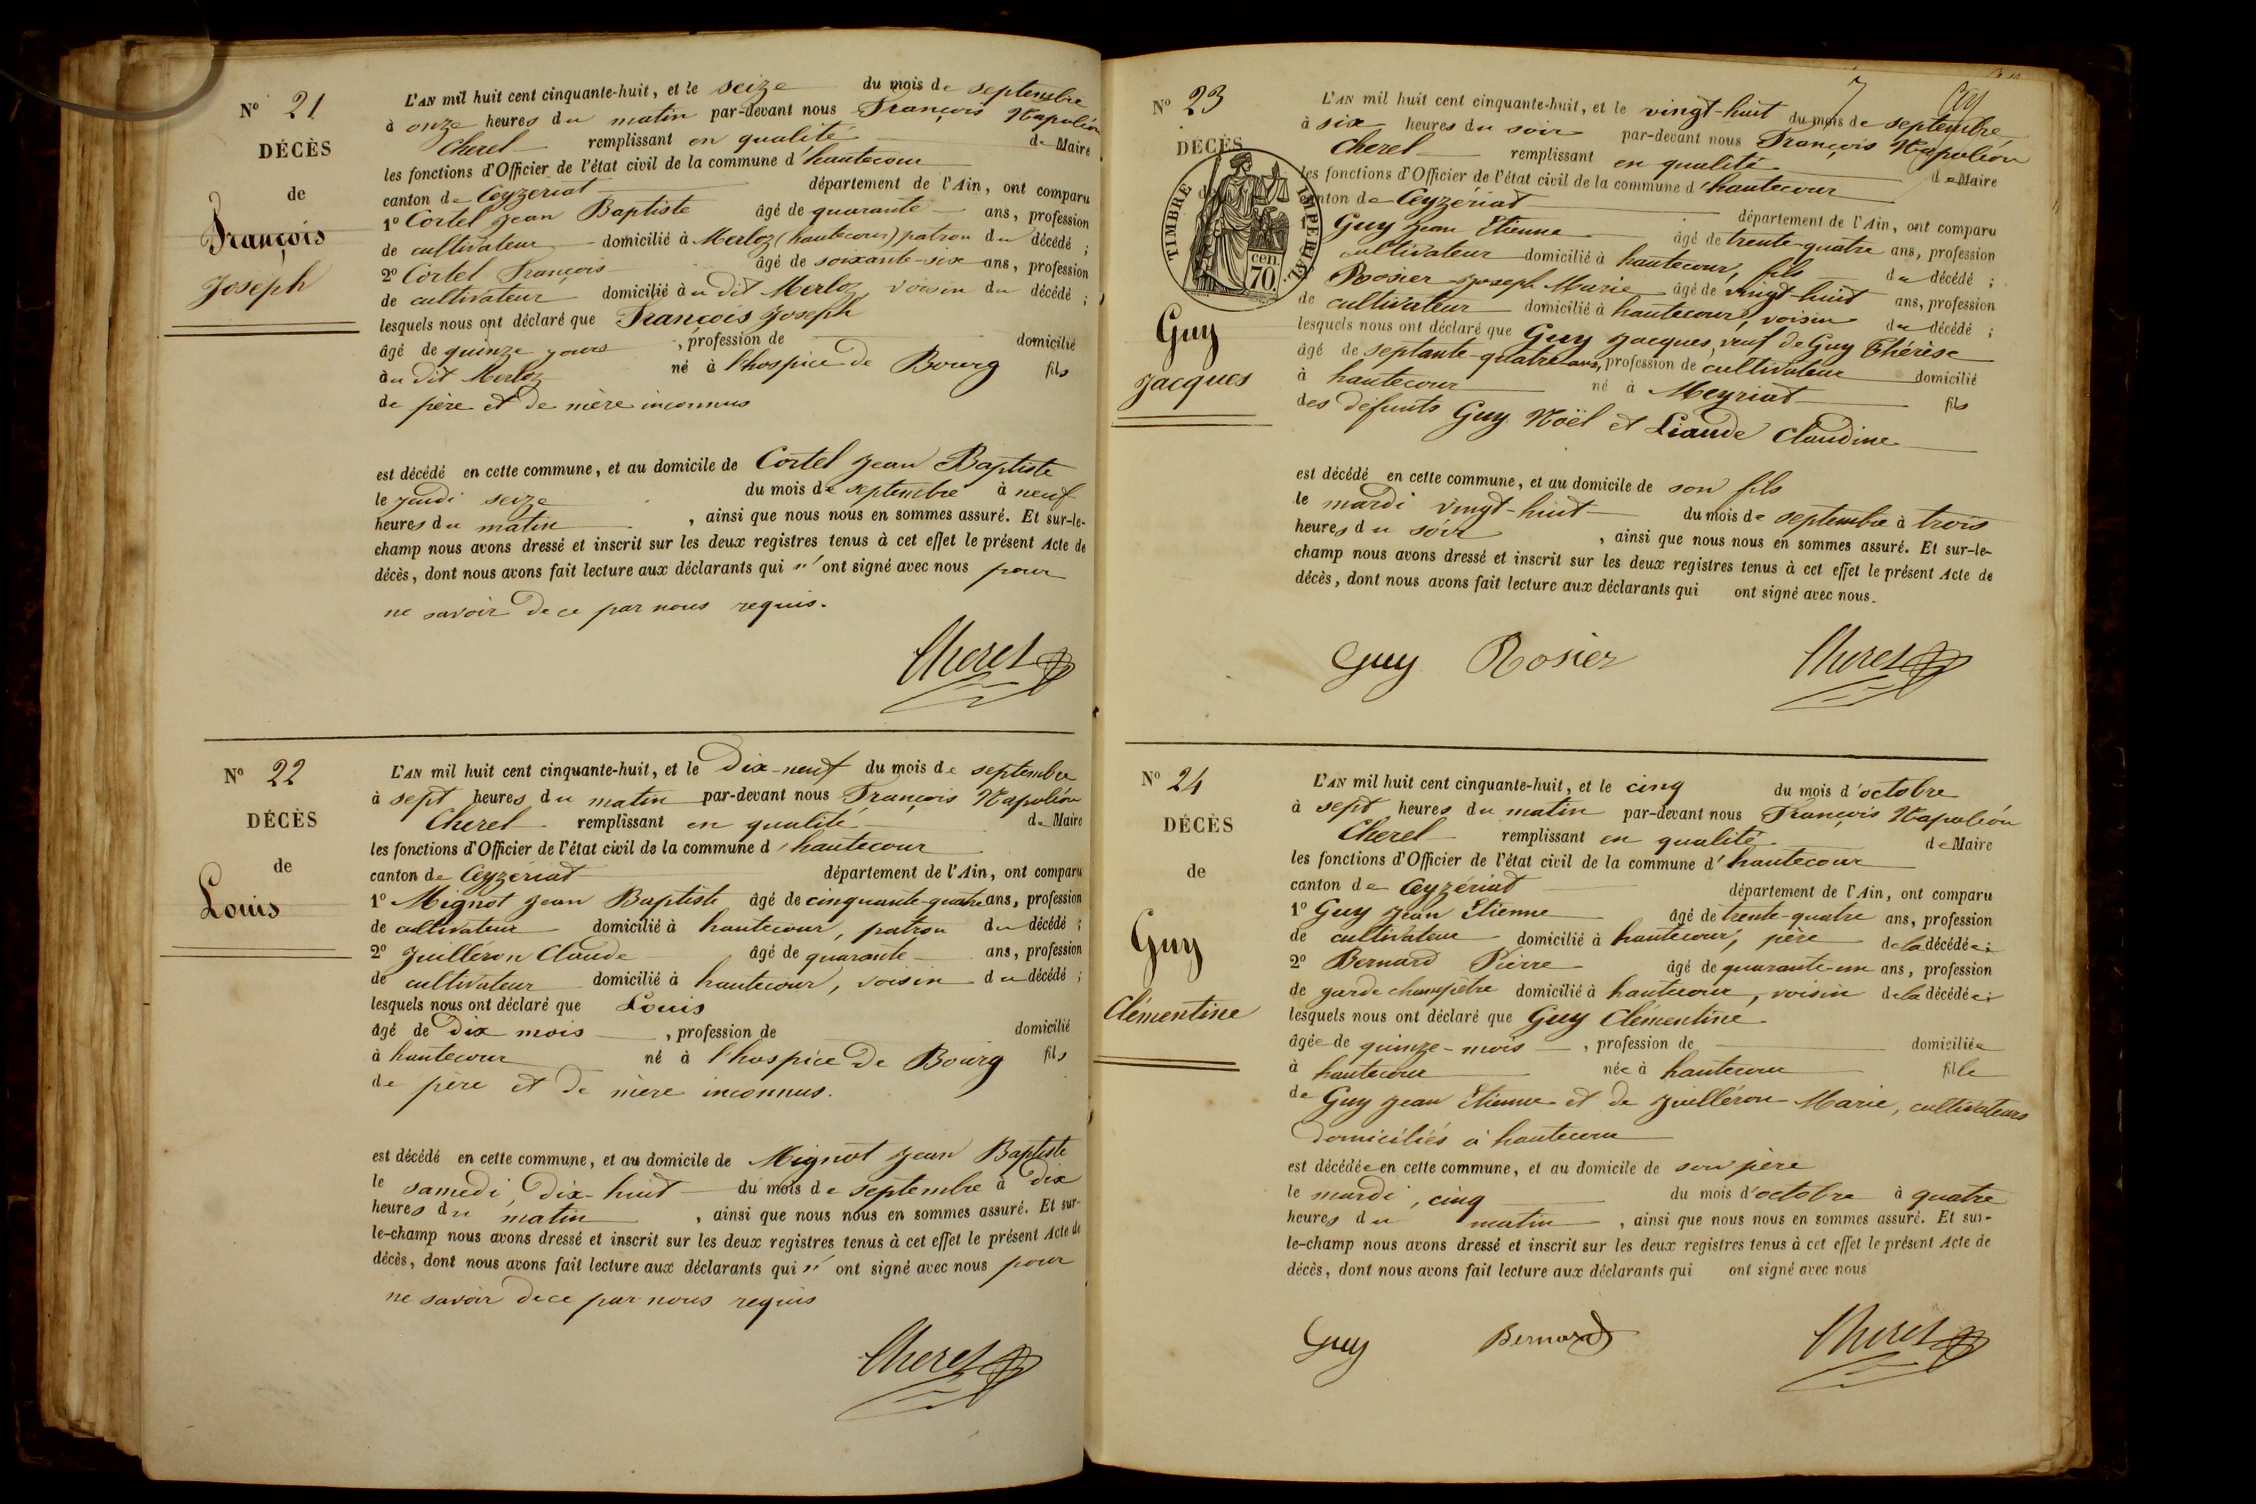 N° 21
DÉCÈS
de
François
Joseph
L'AN mil huit cent cinquante-huit, et le seize du mois de septembre
à onze heures du matin par-devant nous François Napoléon
Cherel remplissant en qualité de Maire
les fonctions d'Officier de l'état civil de la commune d'hautecour
canton de Ceyzériat département de l'Ain, ont comparu
1° Cortel Jean Baptiste âgé de quarante ans, profession
de cultivateur domicilié à Merloz (hautecour) patron du décédé ;
2° Cortel François âgé de soixante-six ans, profession
de cultivateur domicilié à u dit Merloz, voisin du décédé ;
lesquels nous ont déclaré que François Joseph
âgé de quinze jours , profession de domicilié
àu dit Merloz né à l'hospice de Bourg fils
de père et de mère inconnus
est décédé en cette commune, et au domicile de Cortel Jean Baptiste
le jeudi seize du mois de septembre à neuf
heures du matin , ainsi que nous nous en sommes assuré. Et sur-le-
champ nous avons dressé et inscrit sur les deux registres tenus à cet effet le présent Acte de
décès, dont nous avons fait lecture aux déclarants qui n' ont signé avec nous pour
ne savoir de ce par nous requis.
Cherel
N° 22
DÉCÈS
de
Louis
L'AN mil huit cent cinquante-huit, et le dix-neuf du mois de septembre
à sept heures du matin par-devant nous François Napoléon
Cherel remplissant en qualité de Maire
les fonctions d'Officier de l'état civil de la commune d'hautecour
canton de Ceyzériat département de l'Ain, ont comparu
1° Mignot Jean Baptiste âgé de cinquante-quatre ans, profession
de cultivateur domicilié à hautecour, patron du décédé ;
2° Juilléron Claude âgé de quarante ans, profession
de cultivateur domicilié à hautecour, voisin du décédé ;
lesquels nous ont déclaré que Louis
âgé de dix mois , profession de domicilié
à hautecour né à l'hospice de Bourg fils
de père et de mère inconnus.
est décédé en cette commune, et au domicile de Mignot Jean Baptiste
le samedi, dix-huit du mois de septembre à dix
heures du matin , ainsi que nous nous en sommes assuré. Et sur-
le-champ nous avons dressé et inscrit sur les deux registres tenus à cet effet le présent Acte de
décès, dont nous avons fait lecture aux déclarants qui n' ont signé avec nous pour
ne savoir de ce par nous requis
Cherel
7
N° 23
DÉCÈS
de
TIMBRE IMPÉRIAL
cen.
70
Guy
Jacques
L'AN mil huit cent cinquante-huit, et le vingt-huit du mois de septembre
à six heures du soir par-devant nous François Napoléon
Cherel remplissant en qualité de Maire
les fonctions d'Officier de l'état civil de la commune d'hautecour
canton de Ceyzériat département de l'Ain, ont comparu
1° Guy Jean Etienne âgé de trente-quatre ans, profession
cultivateur domicilié à hautecour, fils du décédé ;
Rosier Joseph Marie âgé de vingt-huit ans, profession
de cultivateur domicilié à hautecour, voisin du décédé ;
lesquels nous ont déclaré que Guy Jacques, veuf de Guy Thérèse
âgé de septante-quatre ans, profession de cultivateur domicilié
à hautecour né à Meyriat fils
des défunts Guy Noël et Liaude Claudine
est décédé en cette commune, et au domicile de son fils
le mardi vingt-huit du mois de septembre à trois
heures du soir , ainsi que nous nous en sommes assuré. Et sur-le-
champ nous avons dressé et inscrit sur les deux registres tenus à cet effet le présent Acte de
décès, dont nous avons fait lecture aux déclarants qui ont signé avec nous.
Guy Rosier Cherel
N° 24
DÉCÈS
de
Guy
Clémentine
L'AN mil huit cent cinquante-huit, et le cinq du mois d'octobre
à sept heures du matin par-devant nous François Napoléon
Cherel remplissant en qualité de Maire
les fonctions d'Officier de l'état civil de la commune d'hautecour
canton de Ceyzériat département de l'Ain, ont comparu
1° Guy Jean Etienne âgé de trente-quatre ans, profession
de cultivateur domicilié à hautecour, père de la décédée ;
2° Bernard Pierre âgé de quarante-un ans, profession
de garde champêtre domicilié à hautecour, voisin de la décédée ;
lesquels nous ont déclaré que Guy Clémentine
âgée de quinze-mois , profession de domiciliée
à hautecour née à hautecour fille
de Guy Jean Etienne et de Juilléron Marie, cultivateurs
domiciliés à hautecour
est décédée en cette commune, et au domicile de son père
le mardi, cinq du mois d'octobre à quatre
heures du matin , ainsi que nous nous en sommes assuré. Et sur-
le-champ nous avons dressé et inscrit sur les deux registres tenus à cet effet le présent Acte de
décès, dont nous avons fait lecture aux déclarants qui ont signé avec nous
Guy Bernard Cherel